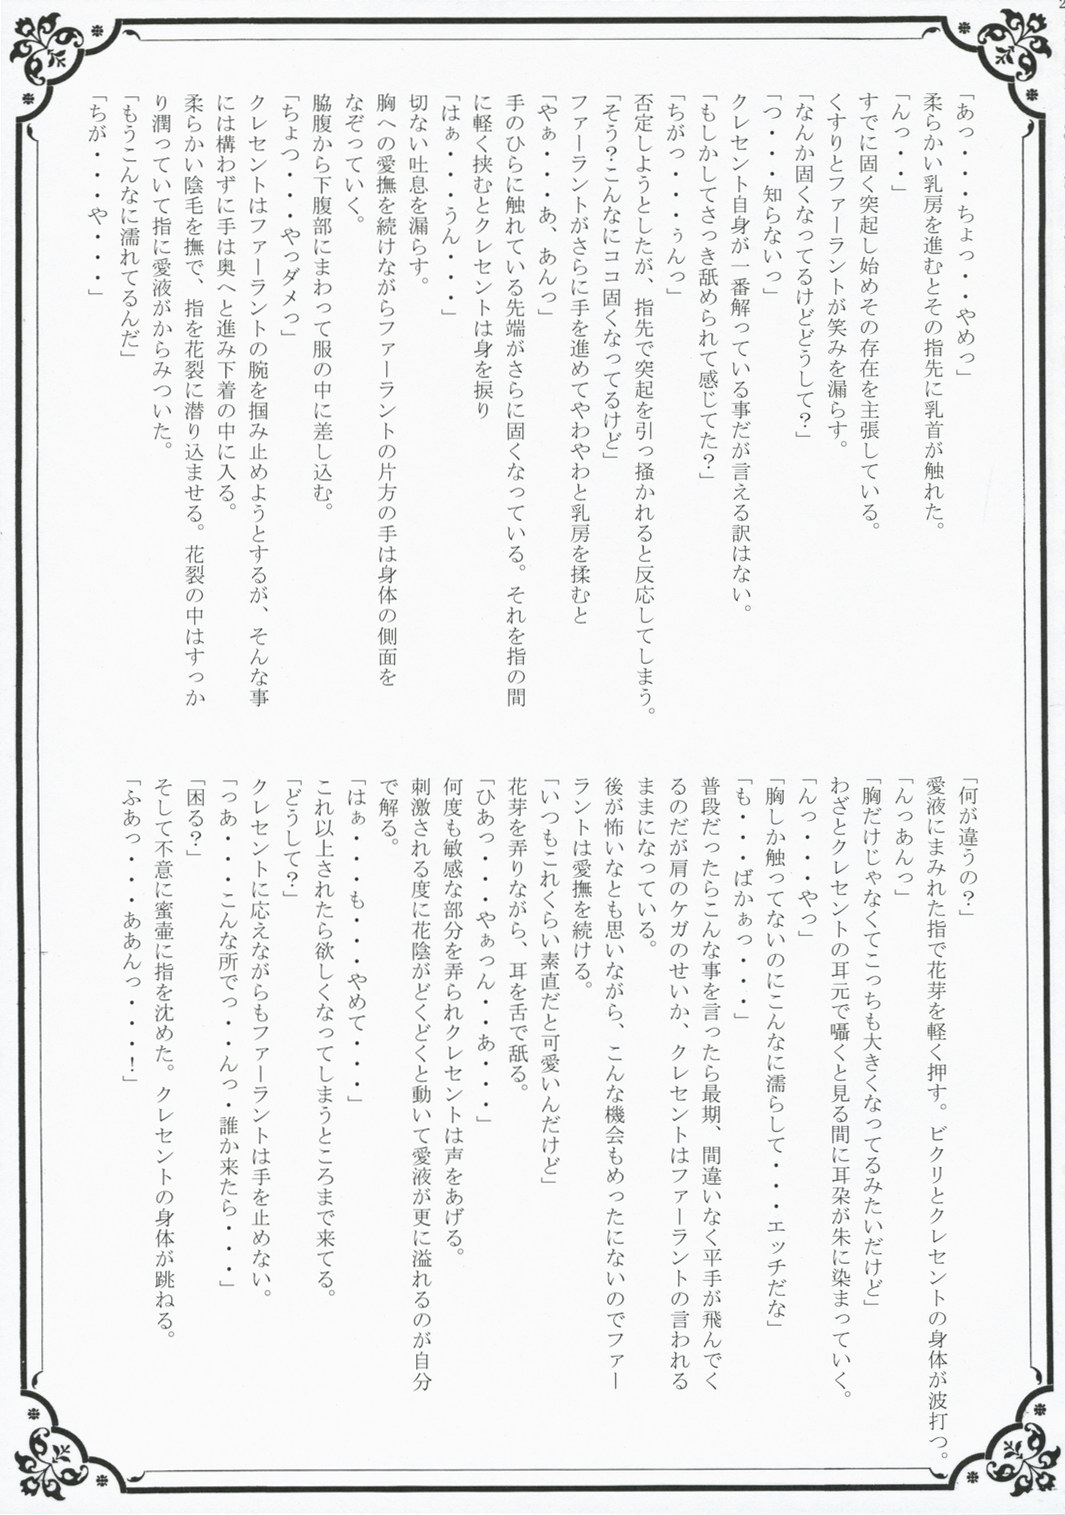 2
「あっ・・・ちょっ・・やめっ」
柔らかい乳房を進むとその指先に乳首が触れた。
「んっ・・」
すでに固く突起し始めその存在を主張している。
くすりとファーラントが笑みを漏らす。
「なんか固くなってるけどどうして？」
「つ・・・知らないっ」
クレセント自身が一番解っている事だが言える訳はない。
「もしかしてさっき舐められて感じてた？」
「ちがっ・・・ぅんっ」
否定しようとしたが、指先で突起を引っ掻かれると反応してしまう。
「そう？こんなにココ固くなってるけど」
ファーラントがさらに手を進めてやわやわと乳房を揉むと
「やぁ・・・あ、あんっ」
手のひらに触れている先端がさらに固くなっている。それを指の間
に軽く挟むとクレセントは身を捩り
「はぁ・・・うん・・・」
切ない吐息を漏らす。
胸への愛撫を続けながらファーラントの片方の手は身体の側面を
なぞっていく。
脇腹から下腹部にまわって服の中に差し込む。
「ちょつ・・・やっダメっ」
クレセントはファーラントの腕を掴み止めようとするが、そんな事
には構わずに手は奥へと進み下着の中に入る。
柔らかい陰毛を撫で、指を花裂に潜り込ませる。花裂の中はすっか
り潤っていて指に愛液がからみついた。
「もうこんなに濡れてるんだ」
「ちが・・・や・・・」
「何が違うの？」
愛液にまみれた指で花芽を軽く押す。ビクリとクレセントの身体が波打つ。
「んっあんっ」
「胸だけじゃなくてこっちも大きくなってるみたいだけど」
わざとクレセントの耳元で囁くと見る間に耳朶が朱に染まっていく。
「んっ・・・やっ」
「胸しか触ってないのにこんなに濡らして・・・エッチだな」
「も・・・ばかぁっ・・・」
普段だったらこんな事を言ったら最期、間違いなく平手が飛んでく
るのだが肩のケガのせいか、クレセントはファーラントの言われる
ままになっている。
後が怖いなとも思いながら、こんな機会もめったにないのでファー
ラントは愛撫を続ける。
「いつもこれくらい素直だと可愛いんだけど」
花芽を弄りながら、耳を舌で舐る。
「ひあっ・・・やぁっん・・あ・・・」
何度も敏感な部分を弄られクレセントは声をあげる。
刺激される度に花陰がどくどくと動いて愛液が更に溢れるのが自分
で解る。
「はぁ・・・も・・・やめて・・・」
これ以上されたら欲しくなってしまうところまで来てる。
「どうして？」
クレセントに応えながらもファーラントは手を止めない。
「っあ・・・こんな所でっ・・んっ・誰か来たら・・・」
「困る？」
そして不意に蜜壷に指を沈めた。クレセントの身体が跳ねる。
「ふあっ・・・ああんっ・・・！」